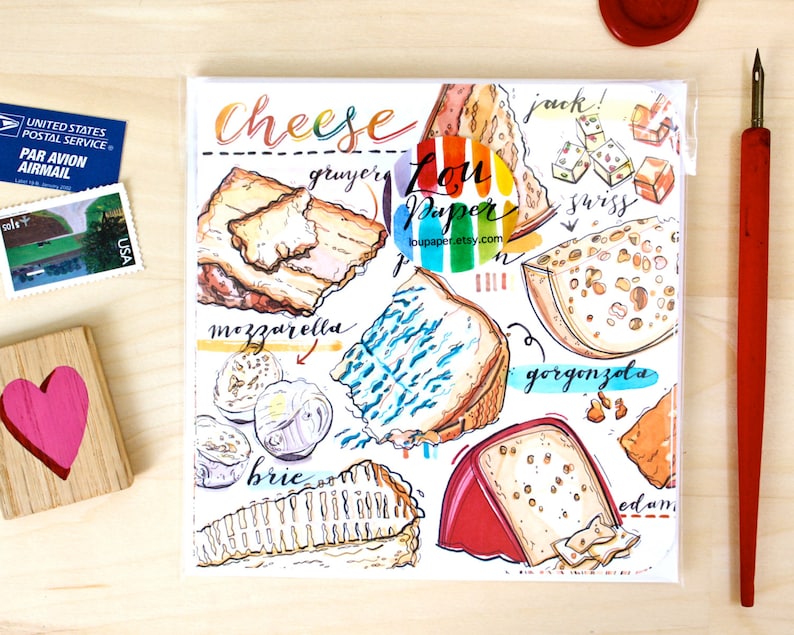 UNITED STATES
POSTAL SERVICE
PAR AVION
AIRMAIL
Label 19-B, January 2002
USA
cheese
jack!
gruyere
Lou
Paper
loupaper.etsy.com
swiss
mozzarella
gorgonzola
brie
edam